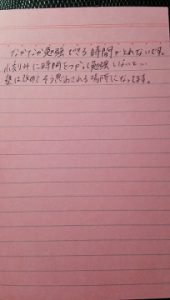 なかなか勉強できる時間がとれないです。
小刻みに時間をつかって勉強しないと
塾は諦めそう思わされる場所になってます。